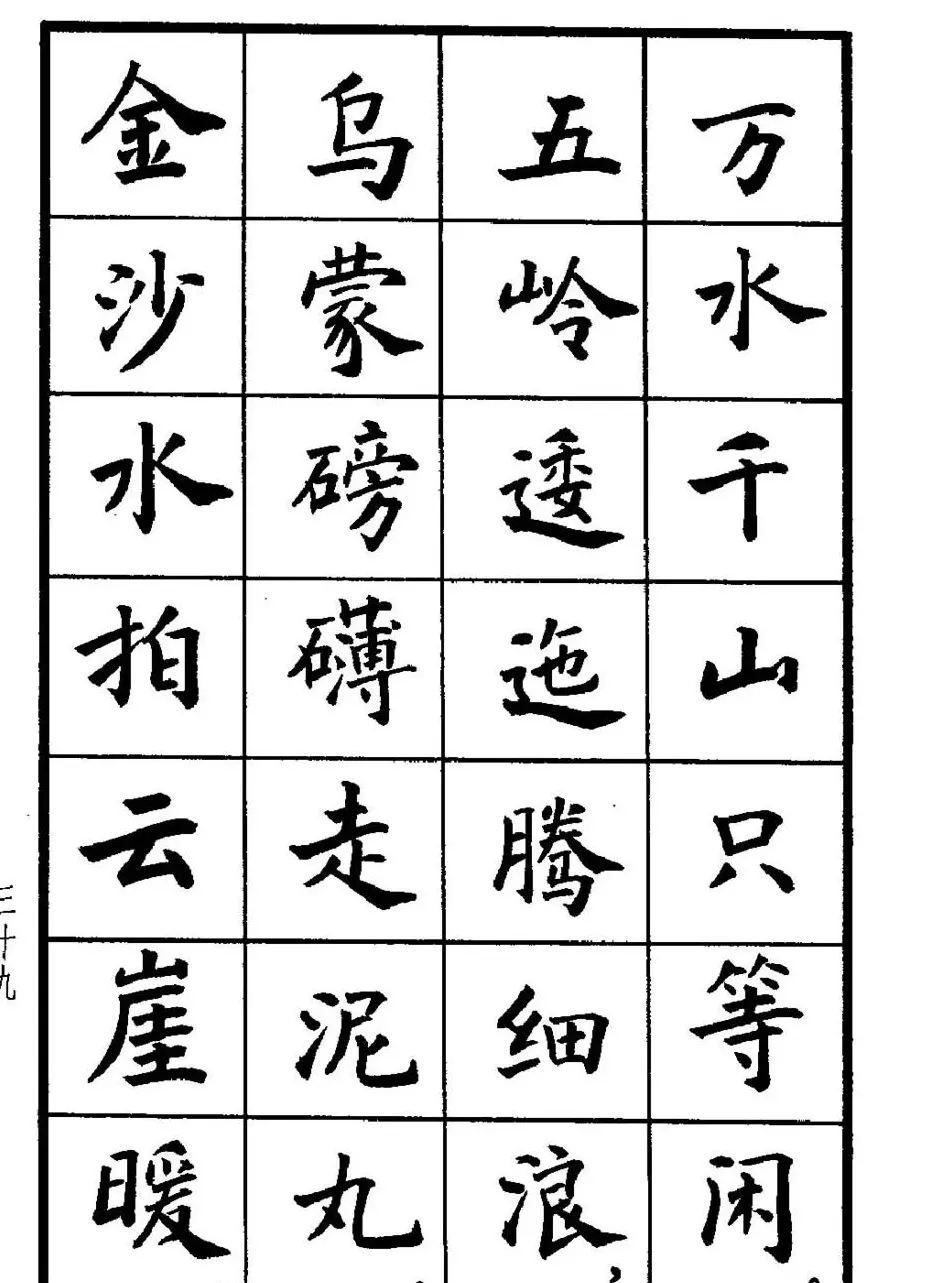 万水千山只等闲。
五岭逶迤腾细浪，
乌蒙磅礴走泥丸。
金沙水拍云崖暖
三十九